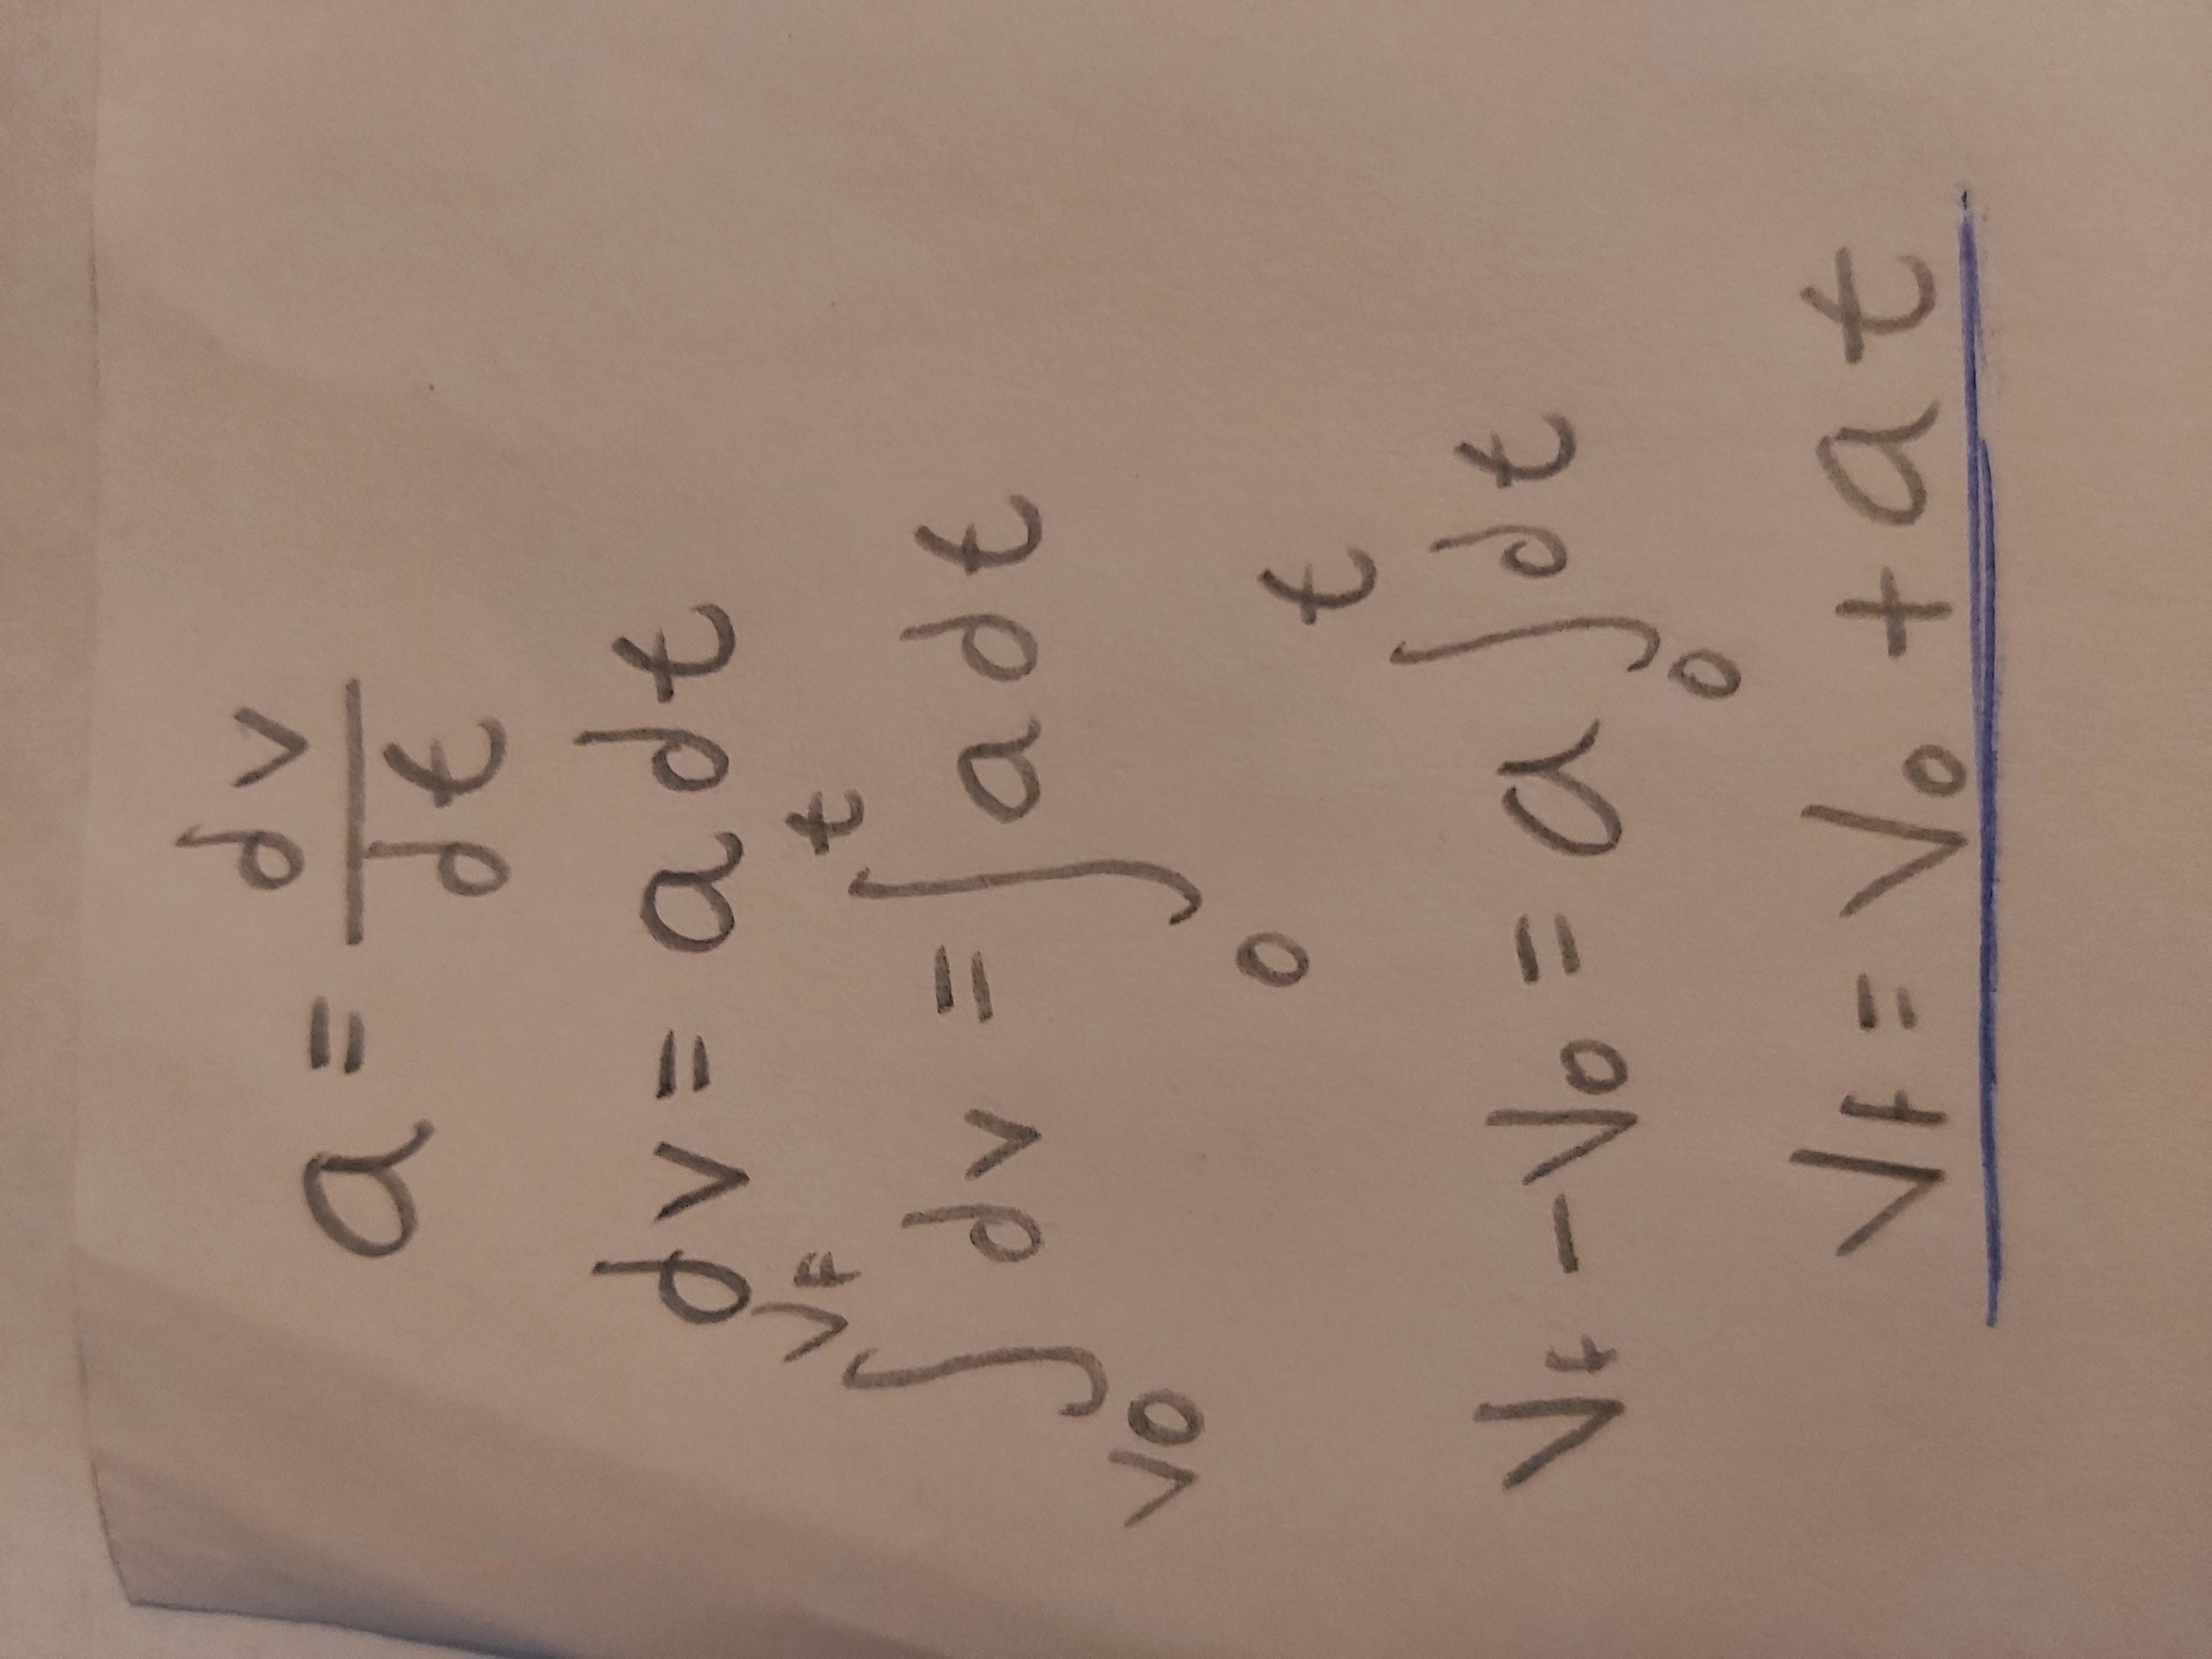 a = dv/dt
dv = a dt
∫_{V0}^{VF} dv = ∫_{0}^{t} a dt
VF - V0 = a ∫_{0}^{t} dt
VF = V0 + a t